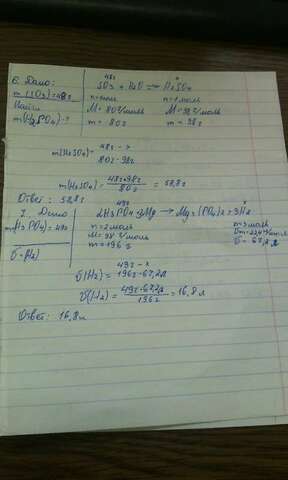 6. Дано:
m(SO3)=48г
Найти
m(H2SO4)-?
48г x
SO3 + H2O → H2SO4
n=1моль n=1моль
M=80г/моль M=98г/моль
m=80г m=98г
m(H2SO4)= 48г - x
80г-98г
m(H2SO4)= 48г•98г / 80г =58,8г
Ответ: 58,8г
7. Дано
m(H3PO4)=49г
V=(H2)
49г x
2H3PO4+3Mg → Mg3(PO4)2+3H2
n=2моль n=3моль
M=98г/моль Vm=22,4л/моль
m=196г V=67,2л
49г - x
V(H2)= 196г-67,2л
V(H2)= 49г•67,2л / 196г =16,8л
Ответ: 16,8л